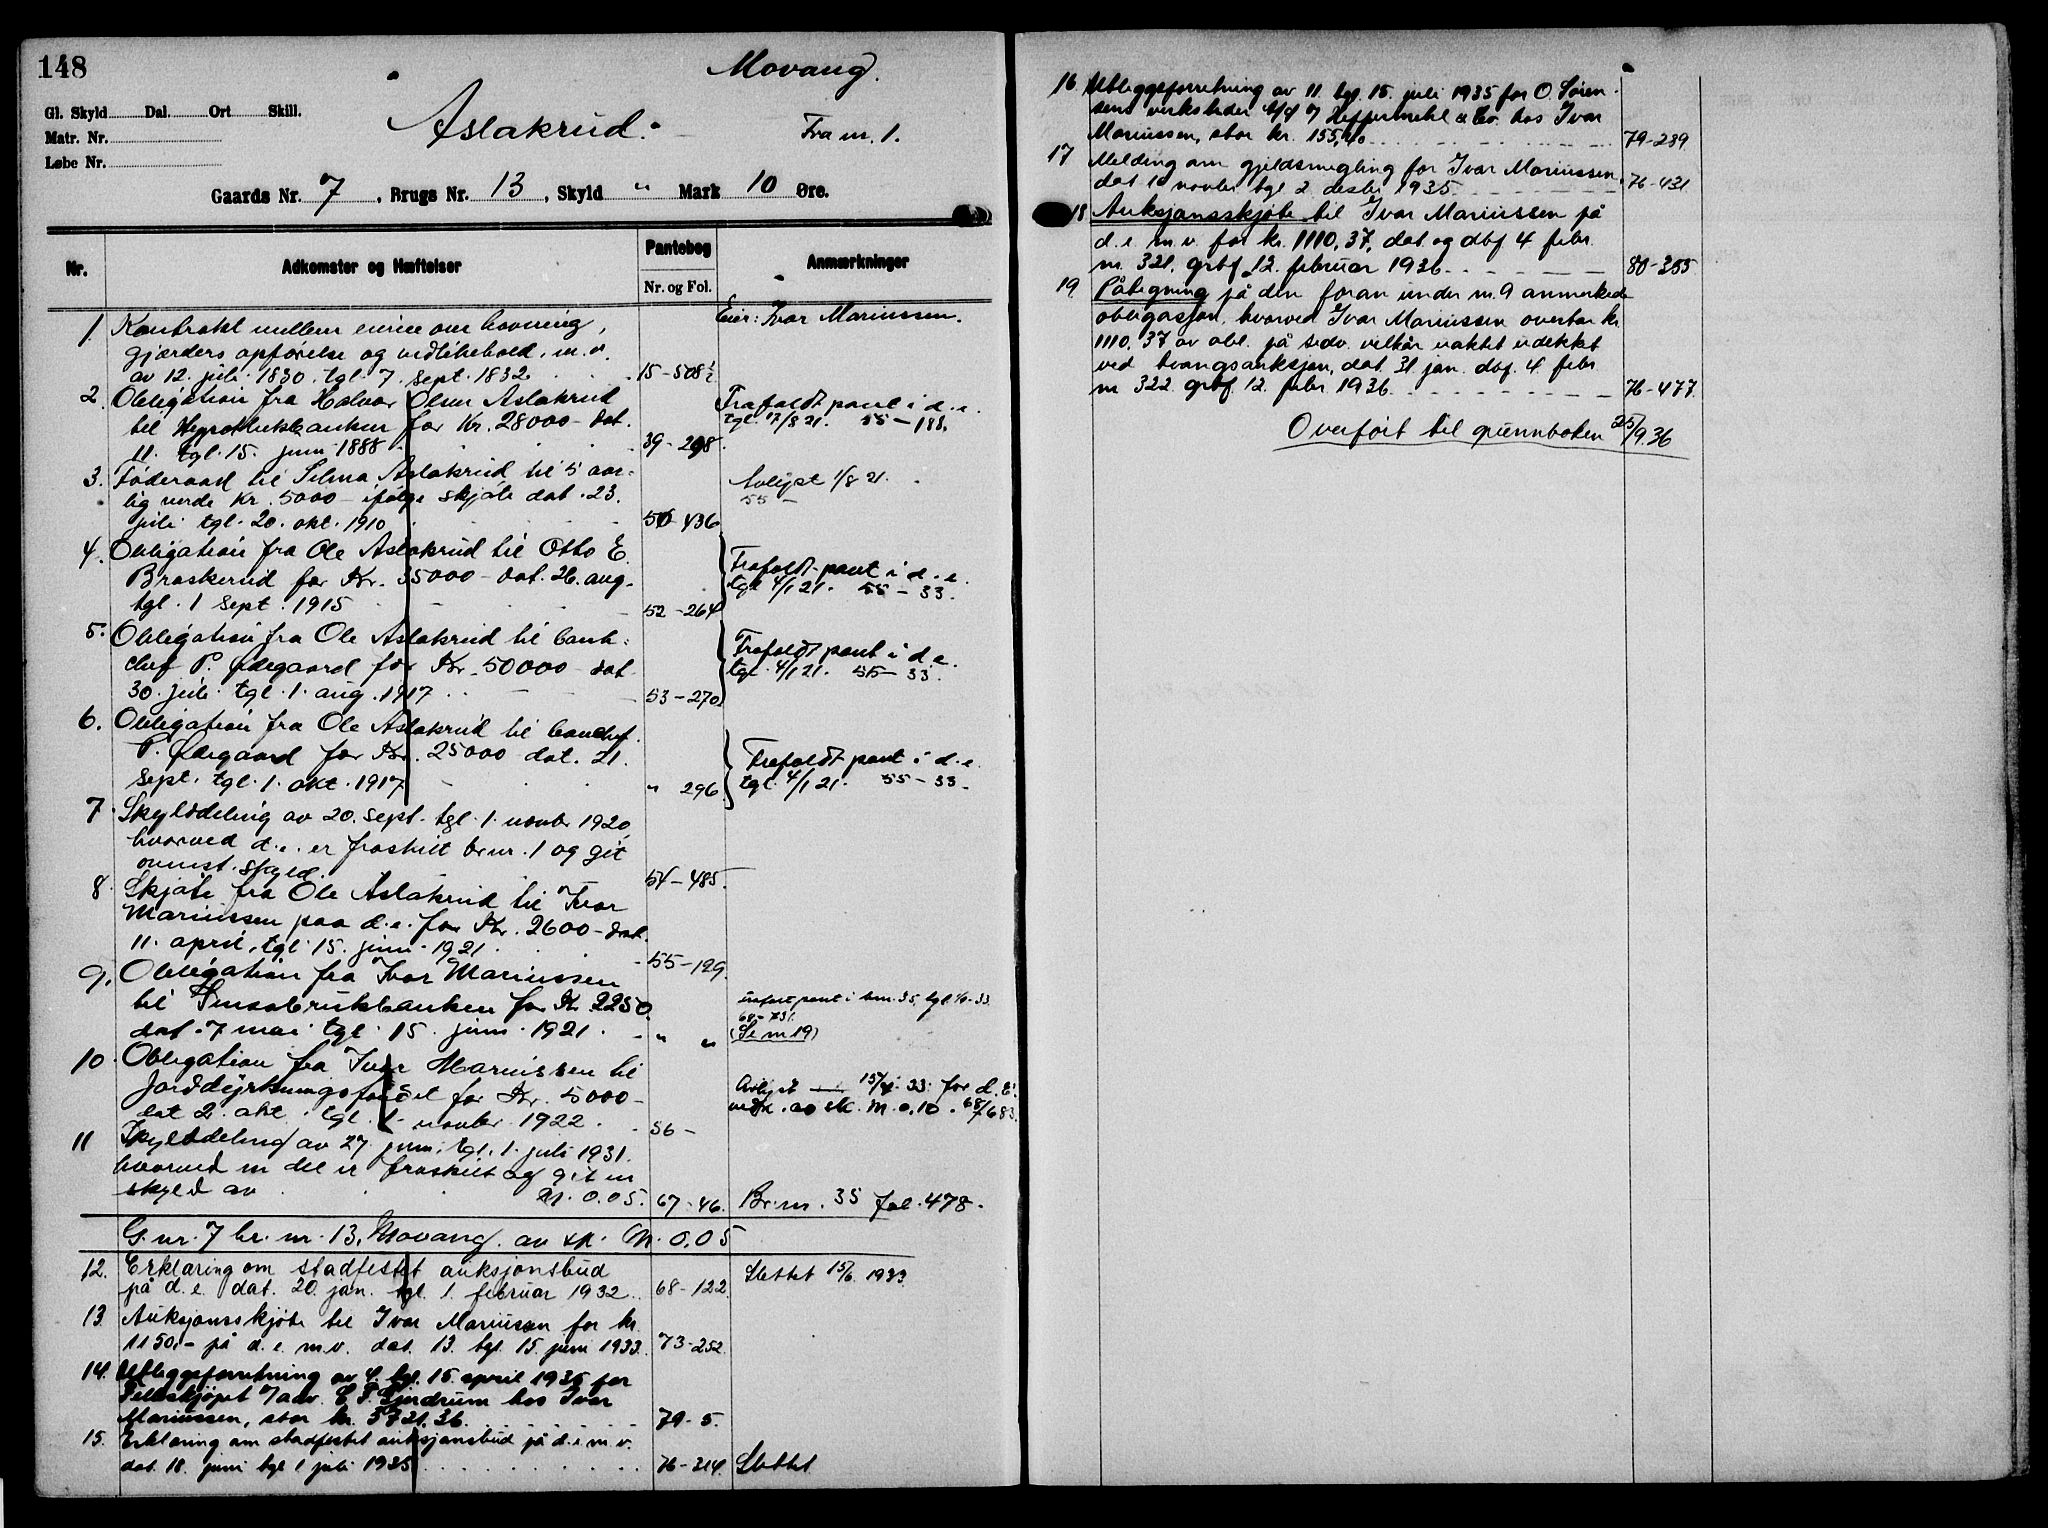 148
Movang.
Aslakrud.
Fra nr. 1.
Gl. Skyld Dal. Ort Skill.
Matr. Nr.
Løbe Nr.
Gaards Nr. 7, Brugs Nr. 13, Skyld " Mark 10 Øre.
Nr.
Adkomster og Hæftelser
Pantebog
Nr. og Fol.
Anmærkninger
Eier: Ivar Mariussen.
1. Kontrakt mellem eierne om havning,
gjærders opførelse og vedlikehold, m. v.
av 12. juli 1830. tgl. 7. sept. 1832. 15-508½
2. Obligation fra Halvor Olsen Aslakrud
til Hypothekbanken for Kr. 28000- dat.
11. tgl. 15. juni 1888 39-298.
Frafaldt pant i d. e.
tgl. 17/8 21. 55-188.
3. Føderaad til Selma Aslakrud til 5 aar-
lig verde Kr. 5000- ifølge skjøte dat. 23.
juli tgl. 20. okt. 1910 50-436
Avlyst 1/8 21.
55-
4. Obligation fra Ole Aslakrud til Otto E.
Braskerud for Kr. 35000- dat. 26. aug.
tgl. 1 sept. 1915 52-264
Frafaldt pant i d. e.
tgl. 4/1 21. 55-33.
5. Obligation fra Ole Aslakrud til bank-
chef P. Ødegaard for Kr. 50000- dat.
30. juli tgl. 1. aug. 1917 53-270
Frafaldt pant i d. e.
tgl. 4/1 21. 55-33.
6. Obligation fra Ole Aslakrud til bankchef
P. Ødegaard for Kr. 25000- dat. 21.
sept. tgl. 1. okt. 1917 " 296
Frafaldt pant i d. e.
tgl. 4/1 21. 55-33.
7. Skylddeling av 20. sept. tgl. 1. novbr 1920,
hvorved d. e. er fraskilt br.nr. 1 og git
ovennt. skyld. 54-485.
8. Skjøte fra Ole Aslakrud til Ivar
Mariussen paa d. e. for Kr. 2600- dat.
11. april, tgl. 15. juni 1921. 55-129.
9. Obligation fra Ivar Mariussen
til Smaabrukbanken for Kr. 2250.
dat. 7 mai tgl. 15. juni 1921. " "
68-731.
(Se nr 19)
10. Obligation fra Ivar Mariussen til
Jorddyrkningsfondet for Kr. 5000-
dat 2. okt. tgl. 1. novbr. 1922. 56-
Avlyst 15/4 33. for d. e.
vedk. av sk. M. 0,10. 68/683.
11 Skylddeling av 27 juni, tgl. 1. juli 1931.
hvorved en del er fraskilt og git en
skyld av M. 0.05. 67-46.
Br.nr. 35 fol. 478.
G. nr. 7 br. nr. 13, Movang. av sk. M. 0,05
12. Erklæring om stadfestet auksjonsbud
på d. e. dat. 20. jan. tgl. 1. februar 1932. 68-122.
Slettet 15/6 1933.
13. Auksjonsskjøte til Ivar Mariussen for kr.
1150,- på d. e. m. v. dat. 13. tgl. 15. juni 1933. 73-252.
14. Utleggsforretning av 4. tgl. 15. april 1935 for
Felleskjøpet v/adv. E. P. Gjerdrum hos Ivar
Mariussen, stor kr. 5721,36 79-5.
15. Erklæring om stadfestet auksjonsbud på d. e. m. v.
dat. 18. juni tgl 1 juli 1935 76-214.
Slettet
16. Utleggsforretning av 11. tgl. 15. juli 1935 for O. Søren-
sens verksteder A/S v/ Heffermehl & Co. hos Ivar
Mariussen, stor kr. 155,40 79-239
17 Melding om gjeldsmegling for Ivar Mariussen
dat 10 novbr tgl 2 desbr 1935. 76-431
18 Auksjonsskjøte til Ivar Mariussen på
d. e. m. v. for kr. 1110,37, dat. og dbf. 4 febr.
nr. 321, grbf. 12. februar 1936 80-355
19. Påtegning på den foran under nr. 9 anmerkede
obligasjon, hvorved Ivar Mariussen overtar kr.
1110,37 av obl. på sedv. vilkår uaktet udekket
ved tvangsauksjon, dat. 31 jan. dbf. 4. febr.
nr 322. grbf. 12. febr 1936 76-477.
Overført til grunnboken 25/9 36